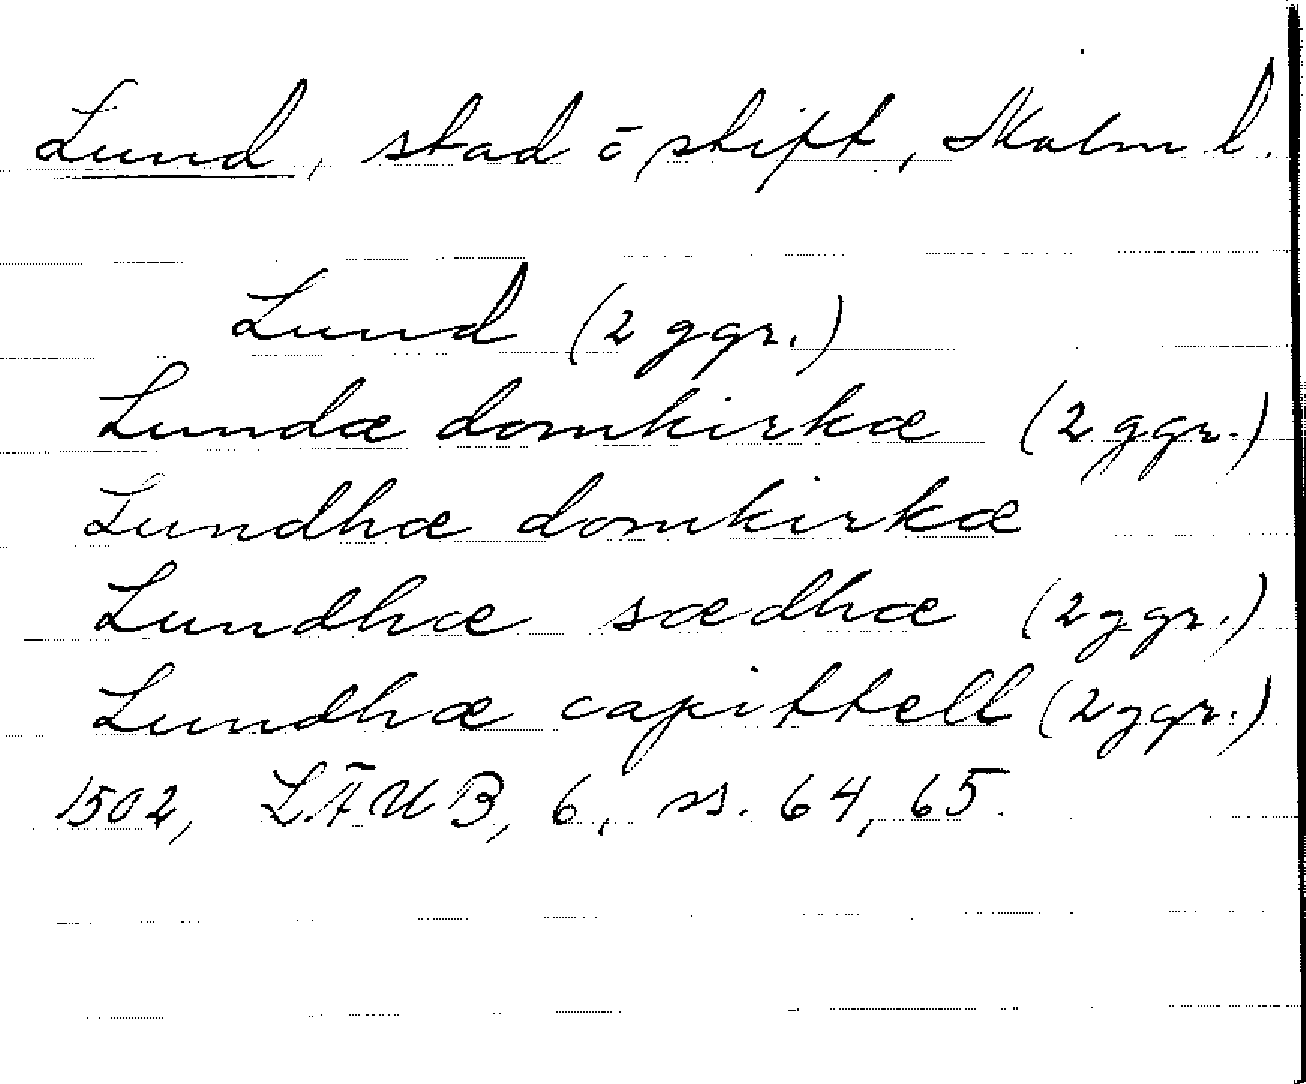 Lund, stad ō stift, Malm l.
Lund (2 ggr.)
Lundæ domkirkæ (2 ggr.)
Lundhæ domkirkæ
Lundhæ sædhæ (2 ggr.)
Lundhæ capittell (2 ggr.)
1502, LÄUB, 6, ss. 64, 65.